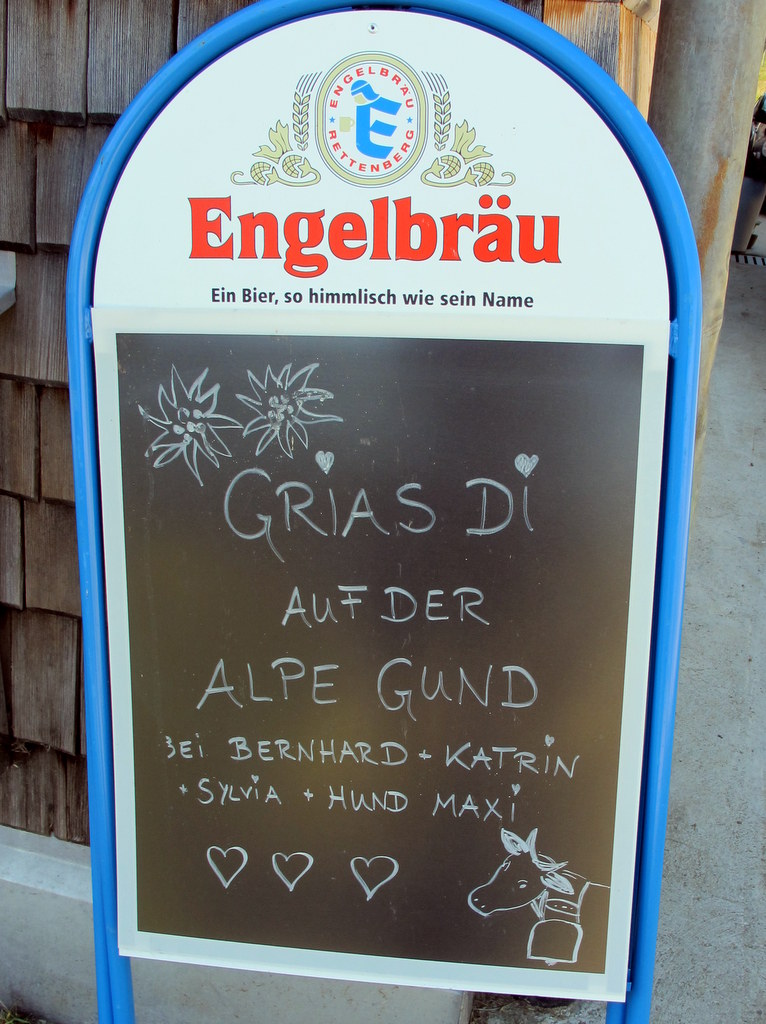 ENGELBRÄU
E
RETTENBERG
Engelbräu
Ein Bier, so himmlisch wie sein Name
GRiAS Di
AUF DER
ALPE GUND
BEi BERNHARD + KATRiN
+ SYLViA + HUND MAXi